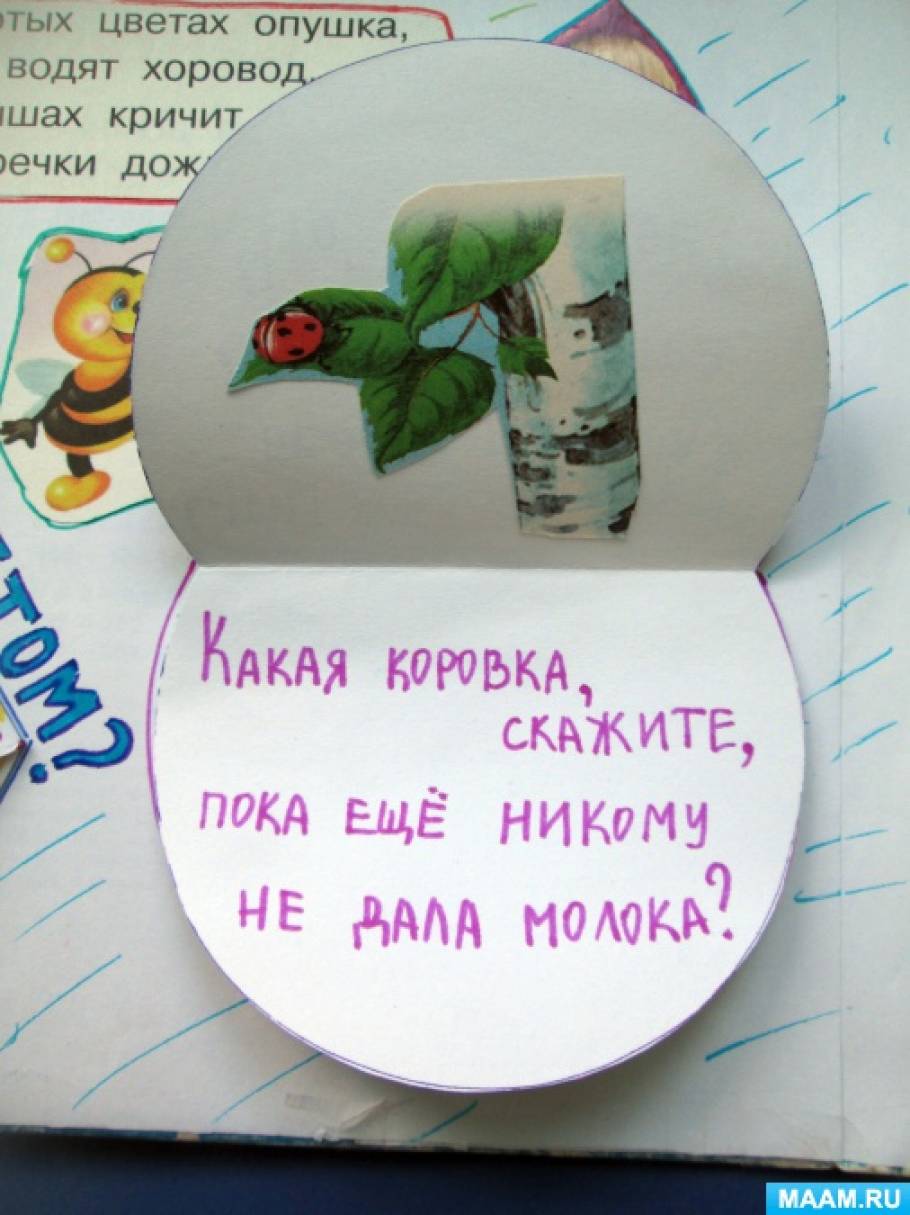 цветах опушка,
водят хоровод.
кричит
Какая коровка,
скажите,
пока ещё никому
не дала молока?
MAAM.RU